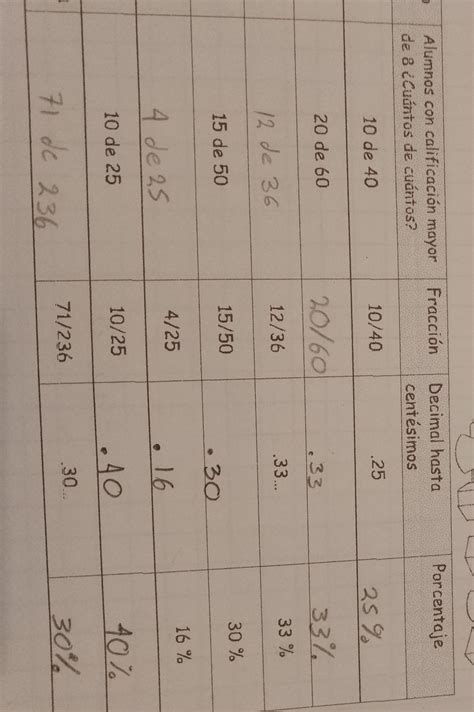 Alumnos con calificación mayor de 8 ¿Cuántos de cuántos? Fracción Decimal hasta centésimos Porcentaje
10 de 40 10/40 .25 25%
20 de 60 20/60 .33 33%
12 de 36 12/36 .33... 33 %
15 de 50 15/50 .30 30 %
4 de 25 4/25 .16 16 %
10 de 25 10/25 .40 40%
71 de 236 71/236 .30... 30%